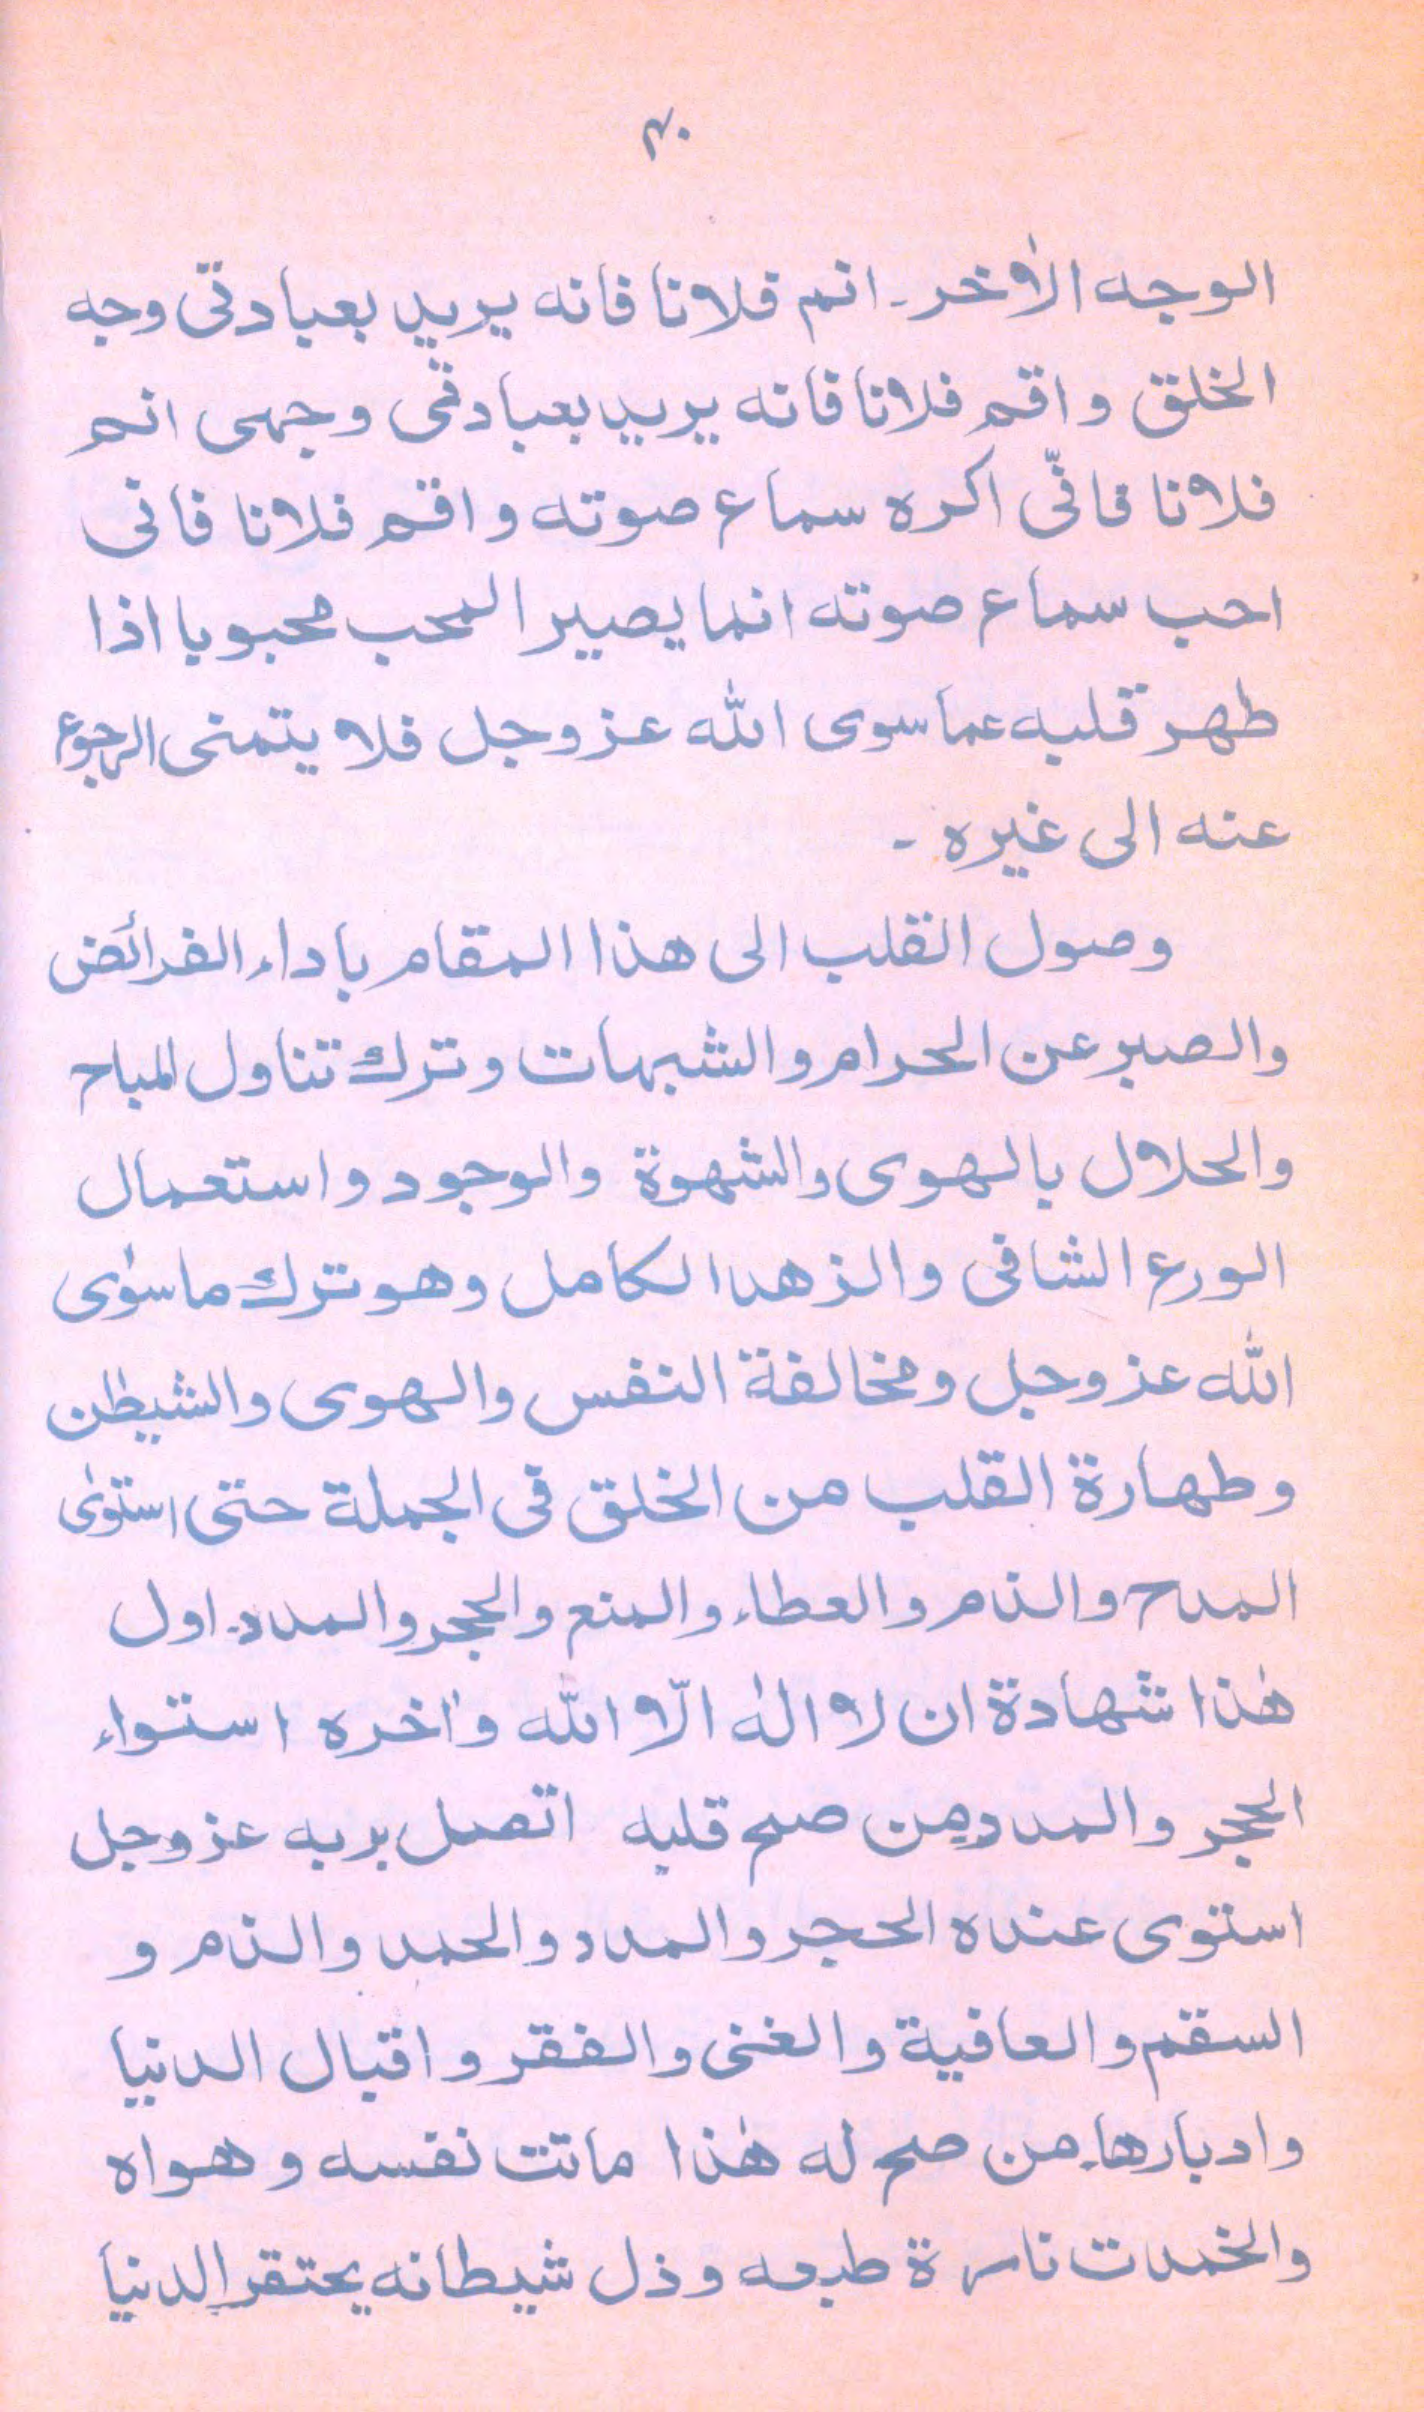 ۴۰
الوجه الاٰخر۔ انم فلانا فانه يريد بعبادتى وجه
الخلق واقم فلانا فانه يريد بعبادتى وجهى انم
فلانا فانّى اكره سماع صوته واقم فلانا فانى
احب سماع صوته انما يصير المحب محبوبا اذا
طهر قلبه عما سوى الله عزوجل فلا يتمنى الرجوع
عنه الى غيره ۔
وصول القلب الى هذا المقام باداء الفرائض
والصبر عن الحرام والشبهات وترك تناول المباح
والحلال بالهوى والشهوة والوجود واستعمال
الورع الشافى والزهد الكامل وهو ترك ماسوٰى
الله عزوجل ومخالفة النفس والهوى والشيطٰن
وطهارة القلب من الخلق فى الجملة حتى استوٰى
المدح والذم والعطاء والمنع والحجر والمدد۔ اول
هٰذا شهادة ان لا الٰه الّا الله واٰخره استواء
الحجر والمدد من صح قلبه اتصل بربه عزوجل
استوى عنده الحجر والمدد والحمد والذم و
السقم والعافية والغنى والفقر واقبال الدنيا
وادبارها۔ من صح له هٰذا ماتت نفسه وهواه
والخمدت نارة طبعه وذل شيطانه يحتقر الدنيا